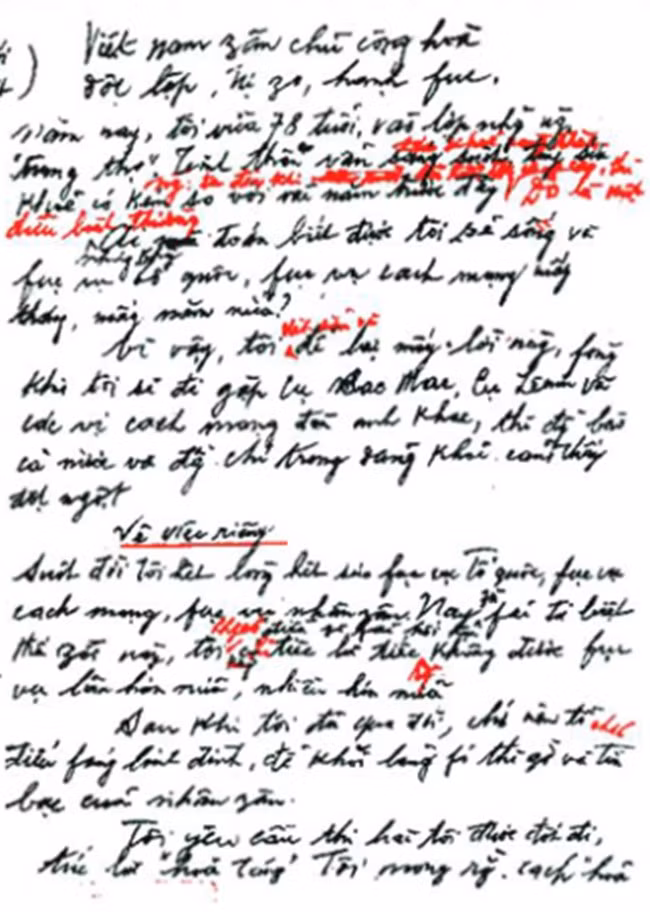 Việt nam zân chủ cộng hoà
độc lập, tự zo, hạnh fuc.
Năm nay, tôi vừa 78 tuổi, vào lớp những ng
"trung thọ" Tinh thần vẫn sáng suốt, tuy sức
khoẻ có kém so với vài năm trước đây Đó là một
điều bình thường
Ai mà đoán biết được tôi sẽ sống và
fục vụ tổ quốc, fục vụ cách mạng mấy
tháng, mấy năm nữa?
Vì vậy, tôi để lại mấy lời này, fòng
khi tôi sẽ đi gặp cụ Các Mác, cụ Lênin và
các vị cách mạng đàn anh khác, thì bào
cả nước và chí trong đảng khỏi cảm thấy
đột ngột
Về việc riêng
Suốt đời tôi hết lòng hết sức fục vụ Tổ quốc, fục vụ
cách mạng, fục vụ nhân zân. Nay zù fải từ biệt
thế zới này, tôi tiếc là tiếc không được fục
vụ lâu hơn nữa, nhiều hơn nữa
Sau khi tôi đã qua đời, chớ nên tổ chức
điếu fúng linh đình, để khỏi lãng fí thì zờ và tiền
bạc của nhân zân.
Tôi yêu cầu thi hài tôi được đốt đi,
tức là "hoả táng" Tôi mong rằng cách "hoả